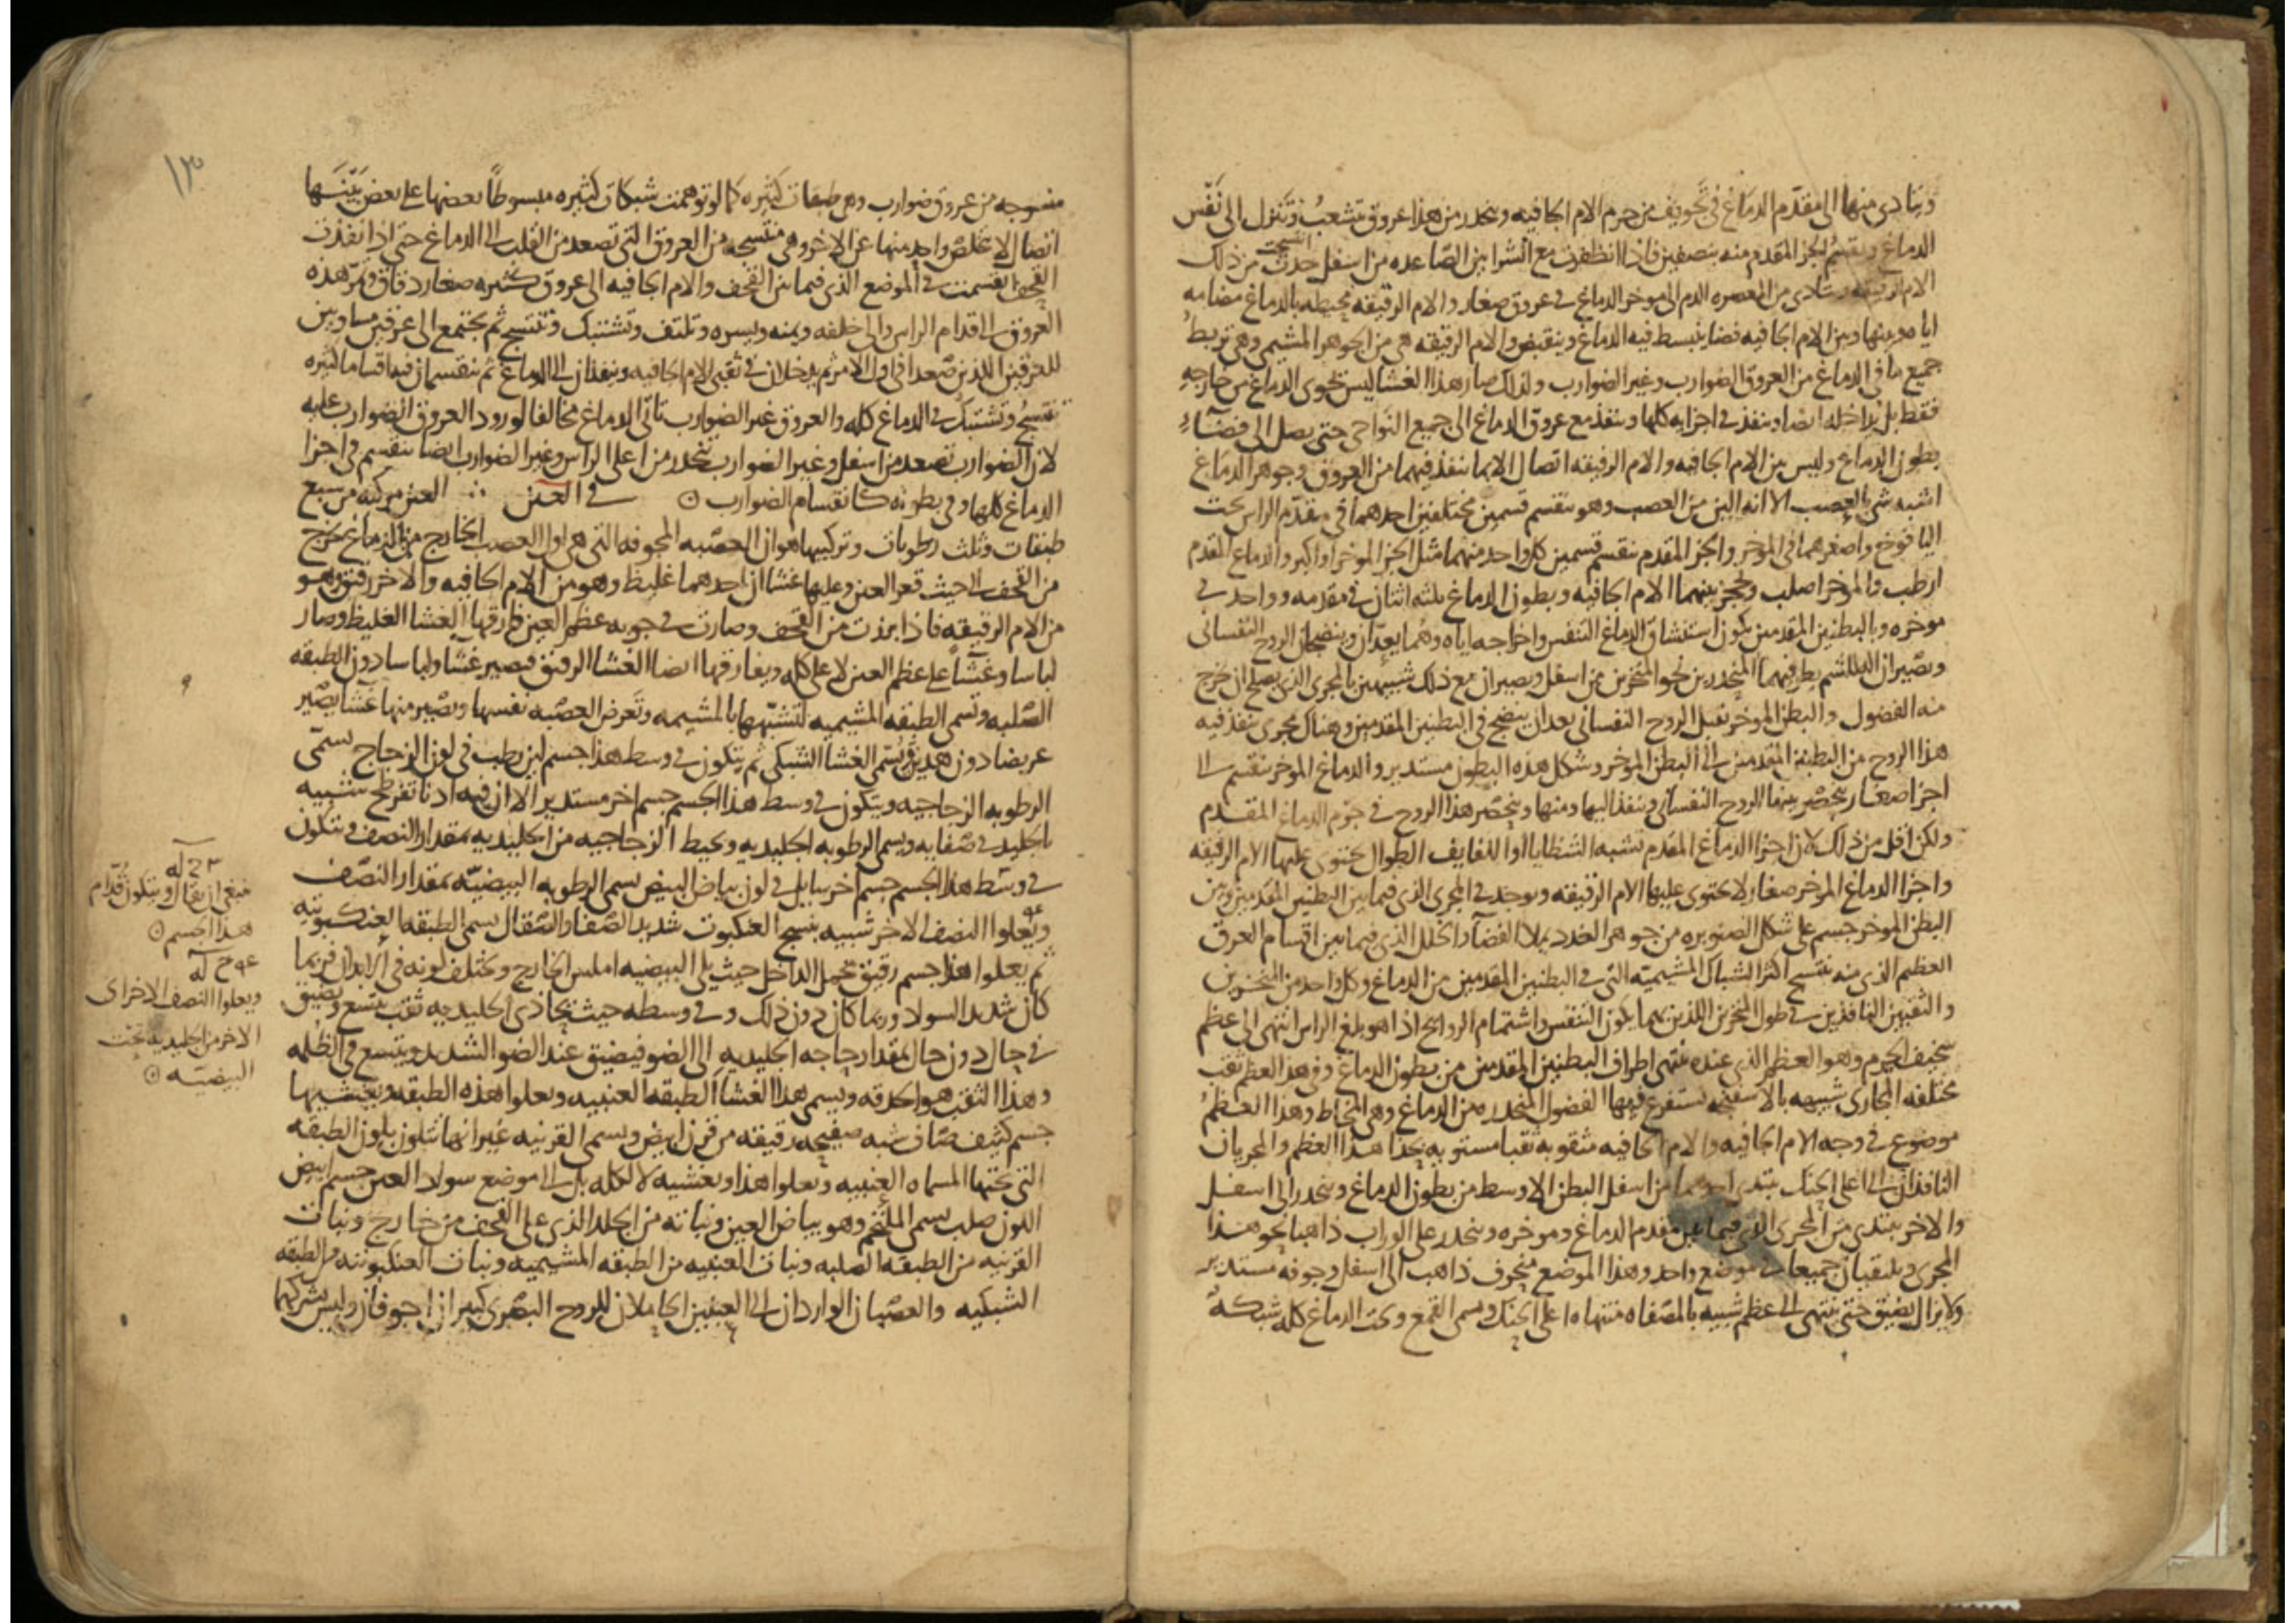 ويتادى منها الى مقدم الدماغ في تجويف من جرم الام الجافيه وينحدر من هذا عروق تتشعب وتنزل الى نفس
الدماغ وينقسم الجز المقدم منه بنصفين فاذا مع الشرايين الصاعده من اسفل حدثت من ذلك
الام الرقيقه ويتادى من المعصره الدم الى موخر الدماغ في عروق صغار والام الرقيقه محيطه بالدماغ مضامه
اياه وبينها وبين الام الجافيه فضا ينبسط فيه الدماغ وينقبض والام الرقيقه هي من الجوهر المشيمى وهي تربط
جميع ما في الدماغ من العروق الضوارب وغير الضوارب ولذلك صار هذا الغشا ليس يحوى الدماغ من خارجه
فقط بل يداخله ايضا وينفذ في اجزايه كلها وينفذ مع عروق الدماغ الى جميع النواحي حتى يصل الى فضاء
بطون الدماغ وليس بين الام الجافيه والام الرقيقه اتصال الا بما ينفذ فيهما من العروق وجوهر الدماغ
اشبه شي بالعصب الا انه الين من العصب وهو ينقسم قسمين مختلفين احدهما في مقدم الراس تحت
اليافوخ واصغرهما في الموخر والجز المقدم ينقسم قسمين كل واحد منهما مثل الجز الموخر او اكبر والدماغ المقدم
ارطب والموخر اصلب ويحجز بينهما الام الجافيه وبطون الدماغ ثلثه اثنان في مقدمه وواحد في
موخره وبالبطنين المقدمين يكون استنشاق الدماغ التنفس واخراجه اياه وهما يعدان وينضجان الروح النفساني
ويصيران للشم بطرفيهما المنحدرين نحو المنخرين من اسفل ويصيران مع ذلك شبيهين بالمجرى الذي يصلح ان يخرج
منه الفضول والبطن الموخر يقبل الروح النفساني بعد ان ينضج في البطنين المقدمين وهناك مجرى ينفذ فيه
هذا الروح من البطنين المقدمين الى البطن الموخر وشكل هذه البطون مستدير والدماغ الموخر ينقسم الى
اجزا صغار ينحصر بينها الروح النفساني وينفذ اليها ومنها وينحصر هذا الروح في جرم الدماغ المقدم
ولكن اقل من ذلك لان اجزا الدماغ المقدم تشبه الشظايا او اللفايف الطوال يحتوى عليها الام الرقيقه
واجزا الدماغ الموخر صغار لا يحتوى عليها الام الرقيقه ويوجد في المجرى الذي فيما بين البطنين المقدمين وبين
البطن الموخر جسم على شكل الصنوبره من جوهر الغدد يملا الفضا والخلل الذي فيما بين اقسام العرق
العظيم الذي منه ينتسج اكثر الشباك المشيميه التي في البطنين المقدمين من الدماغ وكل واحد من المنخرين
والثقبين النافذين في طول المنخرين اللذين بهما يكون التنفس واشتمام الروايح اذا هو بلغ الراس انتهى الى عظم
سخيف الجرم وهو العظم الذي عنده تنتهى اطراف البطنين المقدمين من بطون الدماغ وفي هذا العظم ثقب
مختلفه المجارى شبيهه بالاسفنجه تستفرغ فيها الفضول المنحدره من الدماغ وهي المخاط وهذا العظم
موضوع في وجه الام الجافيه والام الجافيه مثقوبه ثقبا مستويه بحذا هذا العظم والمجريان
النافذان الى اعلى الحنك يبتدى احدهما من اسفل البطن الاوسط من بطون الدماغ وينحدر الى اسفل
والاخر يبتدى من المجرى الذي فيما بين مقدم الدماغ وموخره وينحدر على الوراب ذاهبا نحو هذا
المجرى ويلتقيان جميعا في موضع واحد وهذا الموضع متجوف ذاهب الى اسفل وجوفه مستدير
ولا يزال يضيق حتى ينتهى الى عظم شبيه بالمصفاه منتهاه اعلى الحنك ويسمى القمع وتحت الدماغ كله شبكه
١٣
منسوجه من عروق ضوارب وهي طبقات كثيره كما لو توهمت شبكات كثيره مبسوطا بعضها على بعض بينها
اتصال لا يتخلص واحد منها عن الاخر وهي منتسجه من العروق التي تصعد من القلب الى الدماغ حتى اذا نفذت
القحف انقسمت في الموضع الذي فيما بين القحف والام الجافيه الى عروق كثيره صغار دقاق وتمر هذه
العروق الى قدام الراس والى خلفه ويمنه ويسره وتلتف وتشتبك وتنتسج ثم يجتمع الى عرقين مساويين
للعرقين اللذين صعدا في اول الامر ثم يدخلان في ثقبى الام الجافيه وينفذان الى الدماغ ثم ينقسمان فيه اقساما كثيره
تنتسج وتشتبك في الدماغ كله والعروق غير الضوارب تاتى الدماغ مخالفا لورود العروق الضوارب عليه
لان الضوارب تصعد من اسفل وغير الضوارب تنحدر من اعلى الراس وغير الضوارب ايضا تنقسم في اجزا
الدماغ كلها وفي بطونه كانقسام الضوارب ۞ في العين ∴ العين مركبه من سبع
طبقات وثلث رطوبات وتركيبها هو ان العصبه المجوفه التي هي اول العصب الخارج من الدماغ تخرج
من القحف الى حيث قعر العين وعليها غشاان احدهما غليظ وهو من الام الجافيه والاخر رقيق وهو
من الام الرقيقه فاذا برزت من القحف وصارت في جوبه عظم العين فارقها الغشا الغليظ وصار
لباسا وغشا على عظم العين لا على كله ويفارقها ايضا الغشا الرقيق فيصير غشا ولباسا دون الطبقه
الصلبه وتسمى الطبقه المشيميه لتشبهها بالمشيمه وتعرض العصبه نفسها ويصير منها غشا يصير
عريضا دون هذين ويسمى الغشا الشبكى ثم يتكون في وسط هذا جسم لين رطب في لون الزجاج يسمى
الرطوبه الزجاجيه ويتكون في وسط هذا الجسم جسم اخر مستدير الا ان فيه ادنا تفرطح شبيه
بالجليد في صفايه ويسمى الرطوبه الجليديه وتحيط الزجاجيه من الجليديه بمقدار النصف ويتكون
في وسط هذا الجسم جسم اخر سايل في لون بياض البيض يسمى الرطوبه البيضيه بمقدار النصف
ويعلوا النصف الاخر شبيه بنسج العنكبوت شديد الصفا والصقال يسمى الطبقه العنكبوتيه
ثم يعلوا هذا جسم رقيق مخمل الداخل حيث يلى البيضيه املس الخارج ويختلف لونه في الابدان فربما
كان شديد السواد وربما كان دون ذلك وفي وسطه حيث يحاذى الجليديه ثقب يتسع ويضيق
في حال دون حال بمقدار حاجه الجليديه الى الضو فيضيق عند الضو الشديد ويتسع في الظلمه
وهذا الثقب هو الحدقه ويسمى هذا الغشا الطبقه العنبيه ويعلوا هذه الطبقه ويغشيها
جسم كثيف صاف شبه صفيحه رقيقه من قرن ابيض ويسمى القرنيه غير انها تتلون بلون الطبقه
التي تحتها المسماه العنبيه ويعلوا هذا ويغشيه لا كله بل الى موضع سواد العين جسم ابيض
اللون صلب يسمى الملتحم وهو بياض العين ونباته من الجلد الذي على القحف من خارج ونبات
القرنيه من الطبقه الصلبه ونبات العنبيه من الطبقه المشيميه ونبات العنكبوتيه من الطبقه
الشبكيه والعصبان الواردان الى العينين الحاملان للروح البصرى كبيران اجوفان وليس يشركهما
ينبغى ان يقال ويتكون قدام
هذا الجسم ۞
ويعلوا النصف الاخر اى
الاخر من الجليديه تحت
البيضيه ۞